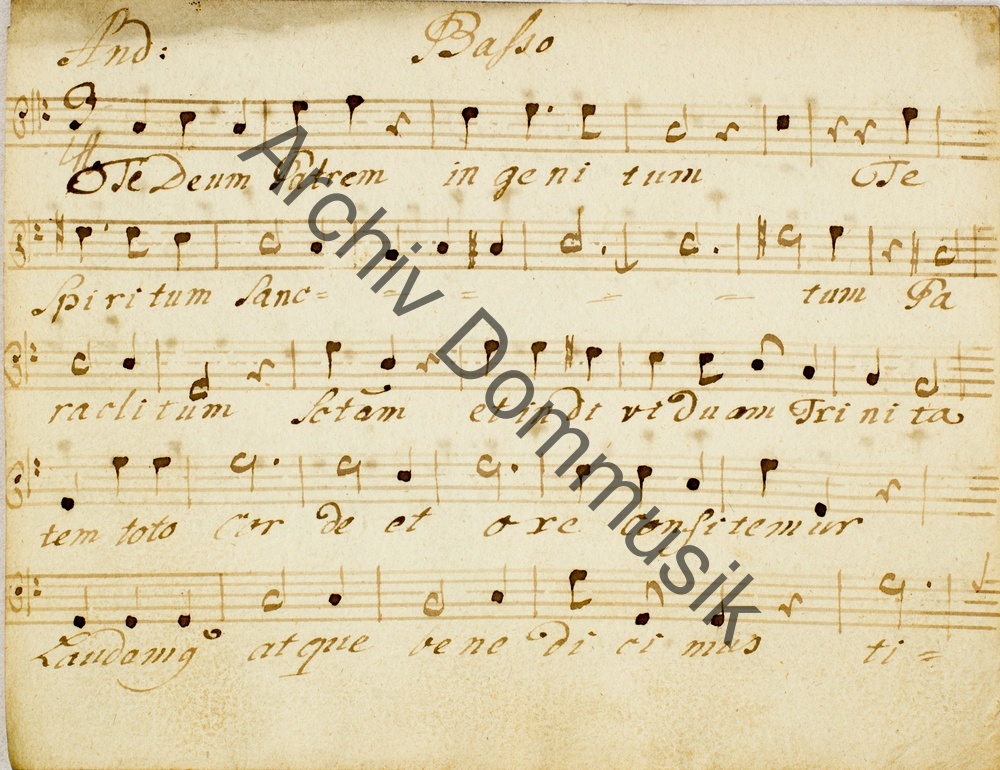 And: Basso
O Te Deum Patrem in ge ni tum O Te
Spiritum Sanc= = = = = tum Pa
raclitum Sctam et in di vi duam Trini ta
tem toto Cor de et o re Confitemur
Laudamus atque bene di ci mus ti =
Archiv Dommusik